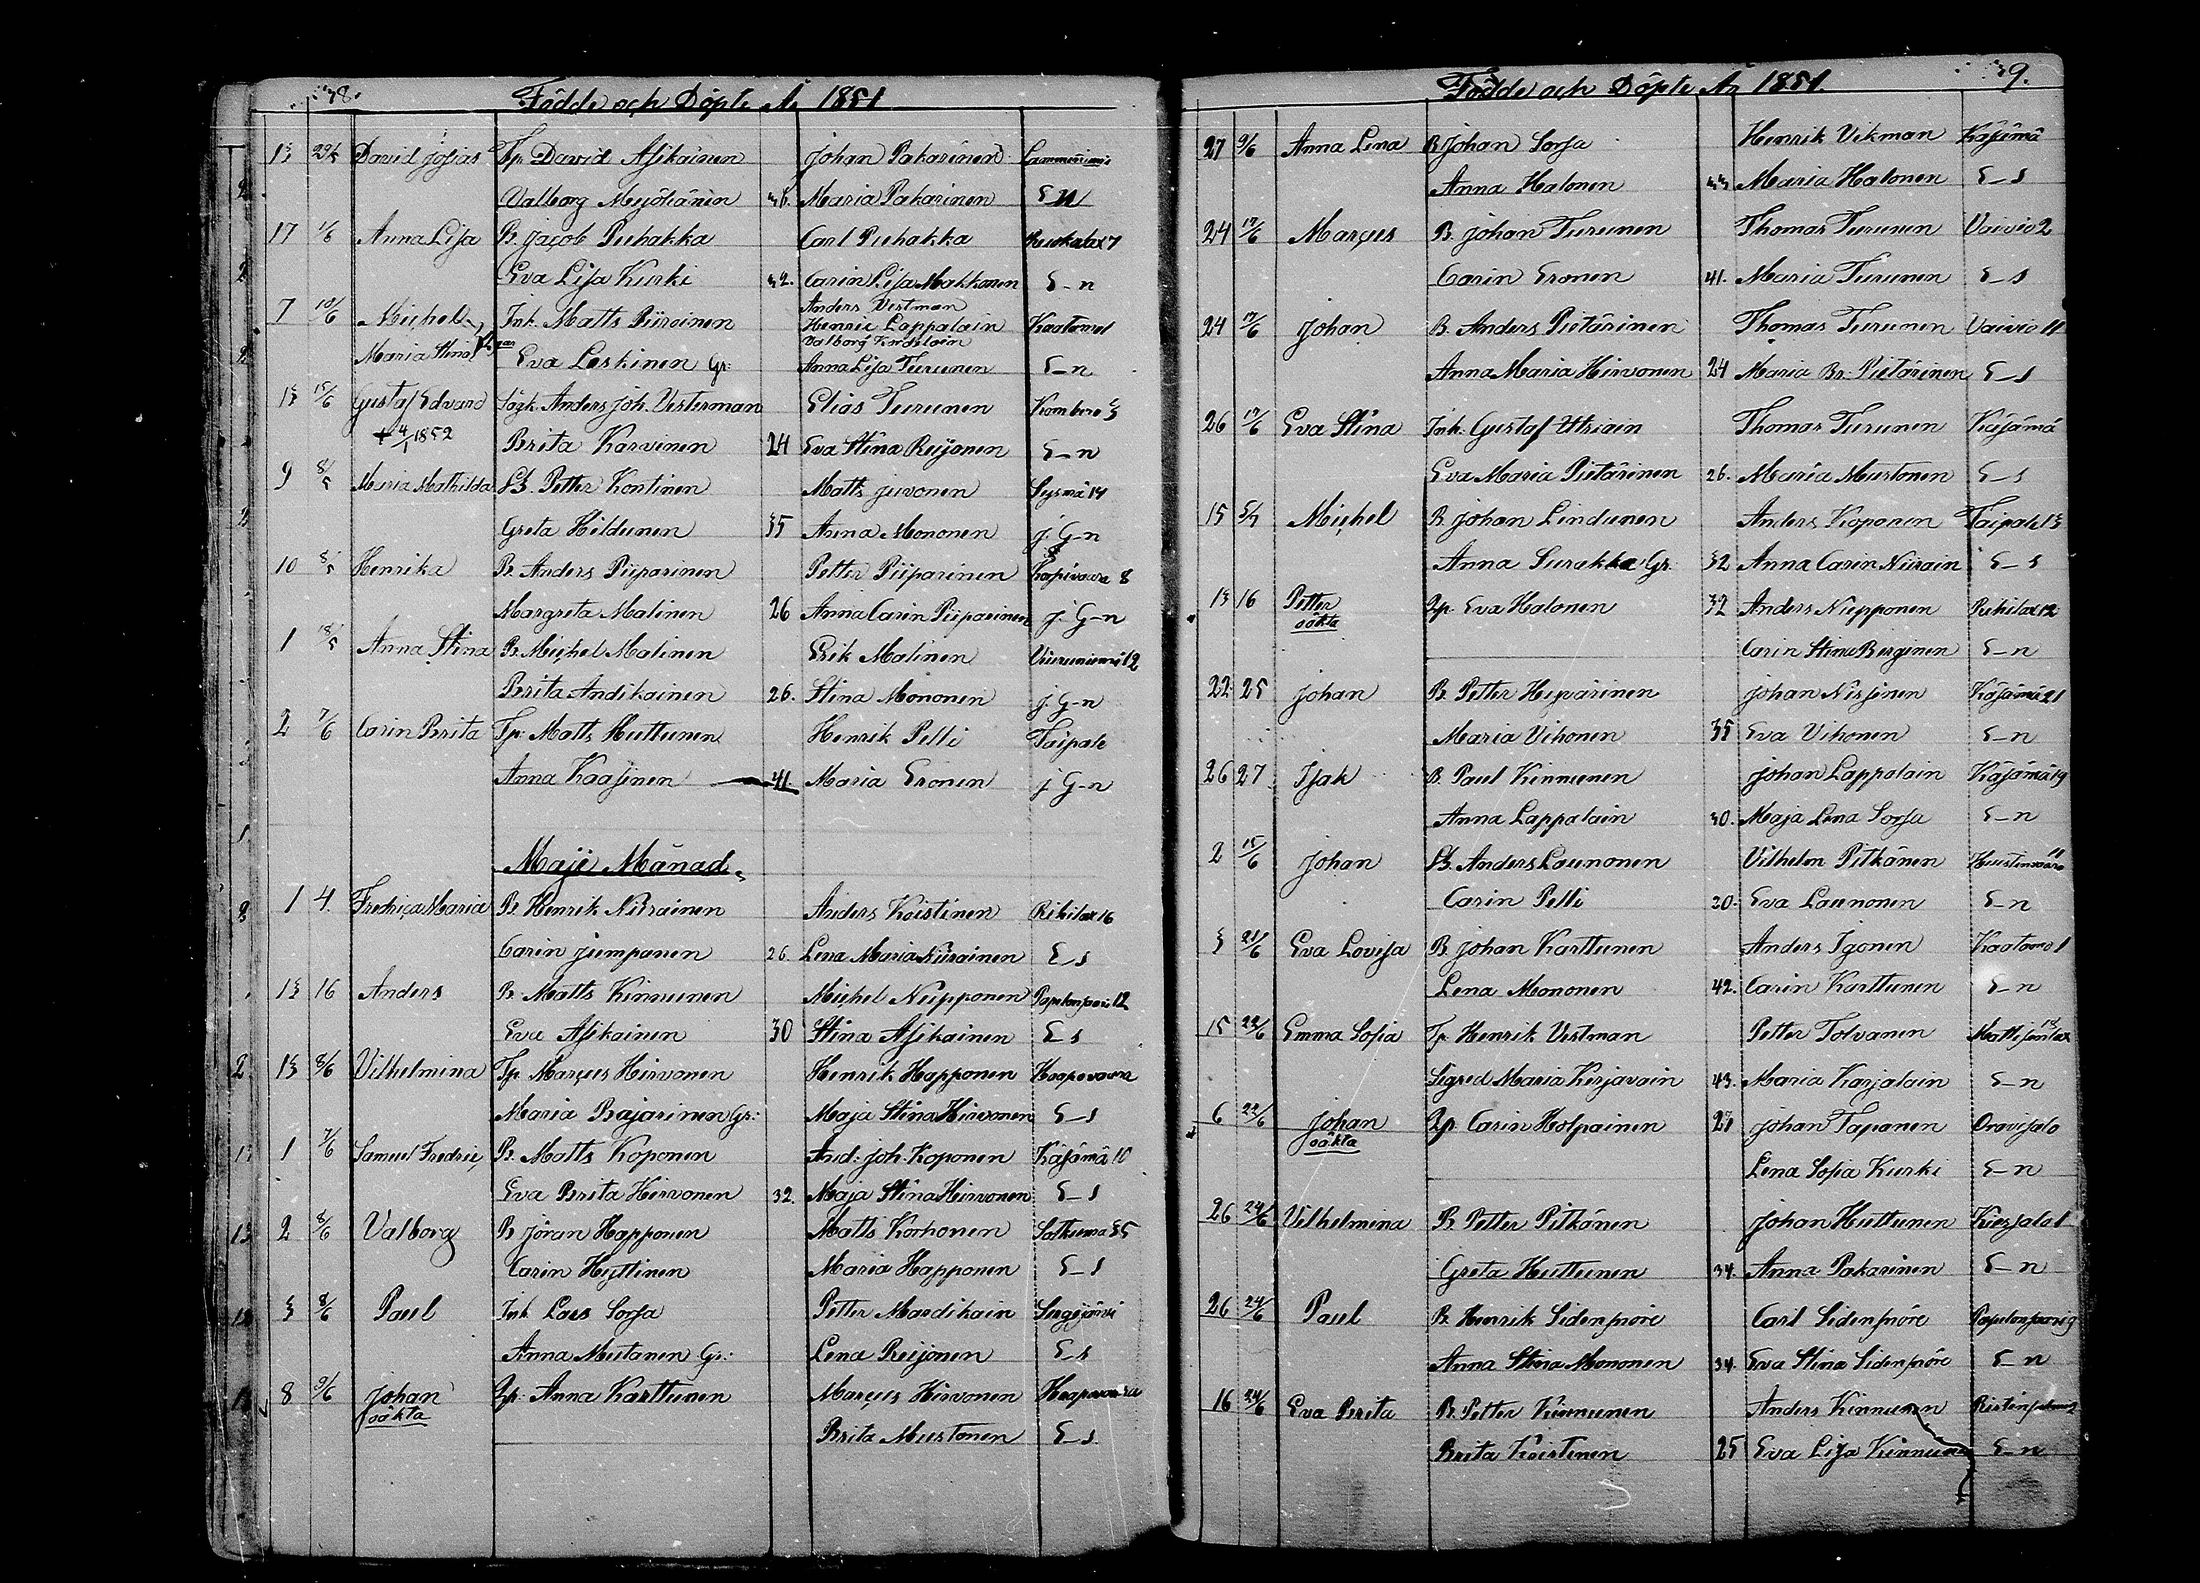 38.
Födde och Döpte År 1851
13 29/5 David Josias Tp. David Asikainen Johan Pakarinen
Valborg 36. Maria Pakarinen E n
17 1/6 Anna Lisa B. Jacob Puhakka Carl Puhakka Ruokalax 7
Eva Lisa Kurki 32. Carin Lisa Makkonen E-n
Anders Vestman
7 10/6 Michel Inh. Matts Piiroinen Henric Lappalain Kaatamo 1
Maria Stina Eva Leskinen Gr: Anna Lisa Turunen E-n
13 15/6 Gustaf Edvard Anders Joh. Vesterman Elias Turunen Kombero 3
+ 4/1 1852 Brita Karvinen 24 Eva Stina Reijonen E-n
9 8/5 Maria Mathilda Lb. Petter Kontinen Matts Juvonen Sysmä 14
Greta Hildunen 35 Anna Mononen j. G-n
10 8/5 Henrika B. Anders Piiparinen Petter Piiparinen 8
Margreta Malinen 26 Anna Carin Piiparinen j. G-n
1 18/5 Anna Stina B. Michel Malinen Erik Malinen 12
Brita Andikainen 26. Stina Mononen j. G-n
2 7/6 Carin Brita Tp. Matts Huttunen Henrik Pelli Taipale
Anna Kaasinen 41. Maria Eronen j. G-n
Maji Månad.
1 4. Fredrica Maria B. Henrik Niirainen Anders Koistinen Rikilax 16
Carin Jumpanen 26. Lena Maria Niirainen E s
13 16 Anders B. Matts Kinnunen Michel Nupponen 12
Eva Asikainen 30 Stina Asikainen E s
13 8/6 Vilhelmina Tp. Marcus Hirvonen Henrik Happonen Haapovaara
Maria Pajarinen Gr: Maja Stina Hirvonen E-s
1 7/6 Samuel Fredric B. Matts Koponen And: Joh. Koponen Käsämä 10
Eva Brita Hirvonen 32. Maja Stina Hirvonen E-s
2 8/6 Valborg B. Jöran Happonen Matts Korhonen Sätkumä 35
Carin Hyttinen Maria Happonen E-s
3 8/6 Paul Inh. Lars Sorsa Petter Mardikain
Anna Mutanen Gr: Lena Reijonen E s
8 9/6 Johan Qp. Anna Karttunen Marcus Hirvonen Haapovaara
oäkta
Brita Mustonen E-s
39.
Födde och Döpte År 1851.
27 9/6 Anna Lena B. Johan Sorsa Henrik Vikman Käsämä
Anna Halonen 33 Maria Halonen E-s
24 17/6 Marcus B. Johan Turunen Thomas Turunen Vaivio 2
Carin Eronen 41. Maria Turunen E-s
24 17/6 Johan B. Anders Pietärinen Thomas Turunen Vaivio 11
Anna Maria Hirvonen 24 Maria Br. Pietärinen E-s
26 17/6 Eva Stina Inh. Gustaf Utriain Thomas Turunen Käsämä
Eva Maria Pietärinen 26. Maria Mustonen E-s
15 5/7 Michel B. Johan Lindunen Anders Koponen Taipale 13
Anna Surakka Gr. 32 Anna Carin Niirain E-s
13 16 Petter Qp. Eva Halonen 32 Anders Nupponen Rikilax 12
oäkta
Carin Stina Birginen E-n
22 25 Johan B. Petter Huparinen Johan Nissinen Käsämä 21
Maria Vihonen 35 Eva Vihonen E-n
26 27 Isak B. Paul Kinnunen Johan Lappalain Käsämä 19
Anna Lappalain 30. Maja Lena Sorsa E-n
2 15/6 Johan Lb. Anders Launonen Vilhelm Pitkänen
Carin Pelli 20. Eva Launonen E-n
3 21/6 Eva Lovisa B. Johan Karttunen Anders Igonen Kaatamo 1
Lena Mononen 42. Carin Karttunen E-n
15 22/6 Emma Sofia Tp. Henrik Vestman Petter Tolvanen
Sigred Maria Kirjavain 43. Maria Karjalain E-n
6 22/6 Johan Qp. Carin Holpainen 27 Johan Tapanen Orovisalo
oäkta
Lena Sofia Kurki E-n
26 24/6 Vilhelmina B. Petter Pitkänen Johan Huttunen
Greta Huttunen 34. Anna Pakarinen E-n
26 24/6 Paul B. Henrik Sidensnöre Carl Sidensnöre
Anna Stina Mononen 34. Eva Stina Sidensnöre E-n
16 24/6 Eva Brita B. Petter Kinnunen Anders Kinnunen
Brita Koistinen 25 Eva Lisa Kinnunen E-n